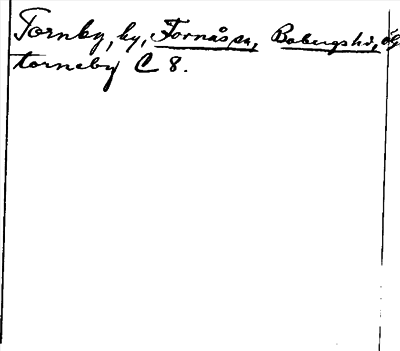 Tornby, by, Fornåsa sn, Bobergs hd, Ög
torneby C 8.